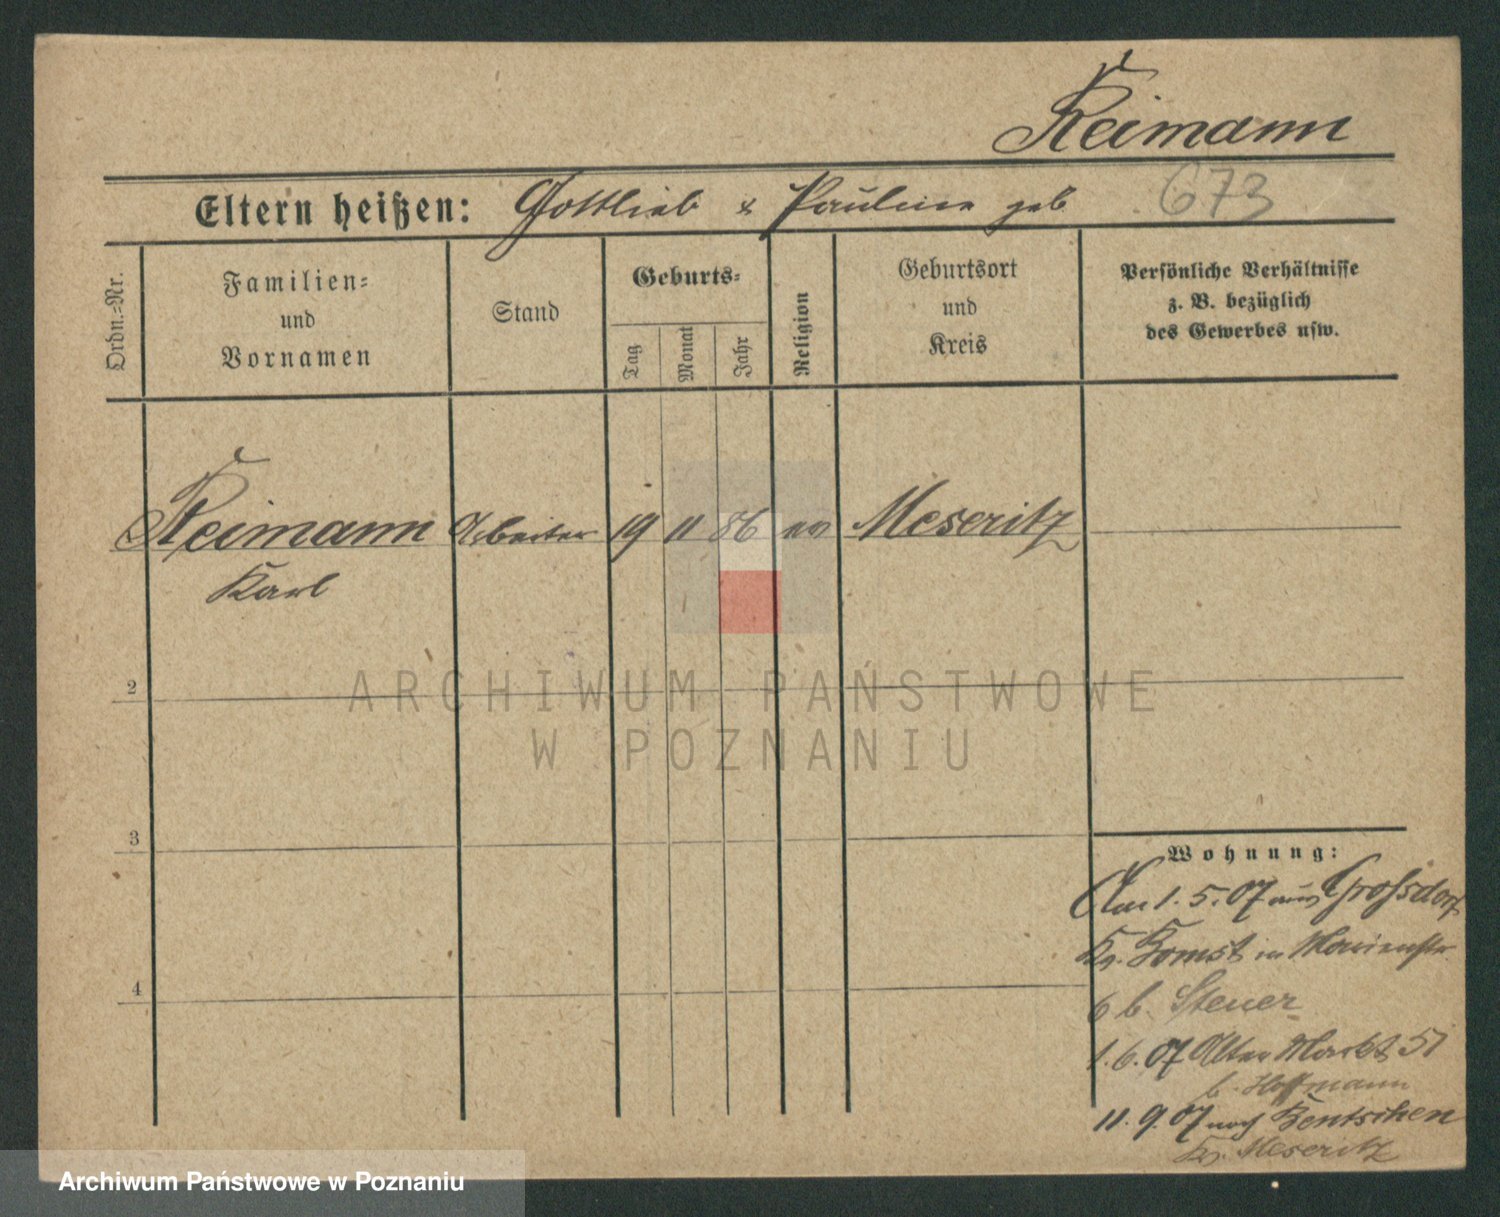 Reimann
Eltern heißen: Gottlieb & Pauline geb 673
Ordn.=Nr.
Familien=
und
Vornamen
Stand
Geburts=
Tag
Monat
Jahr
Religion
Geburtsort
und
Kreis
Persönliche Verhältnisse
z. B. bezüglich
des Gewerbes usw.
Reimann Arbeiter 19 11 86 ev Meseritz
Karl
2
ARCHIWUM PAŃSTWOWE
W POZNANIU
3
4
Wohnung:
Am 1. 5. 07 aus Grossdorf
Kr. Bomst in Marienstr
6 b. Steuer
1. 6. 07 Alter Markt 51
b. Hoffmann
11. 9. 07 nach Bentschen
Kr. Meseritz
Archiwum Państwowe w Poznaniu